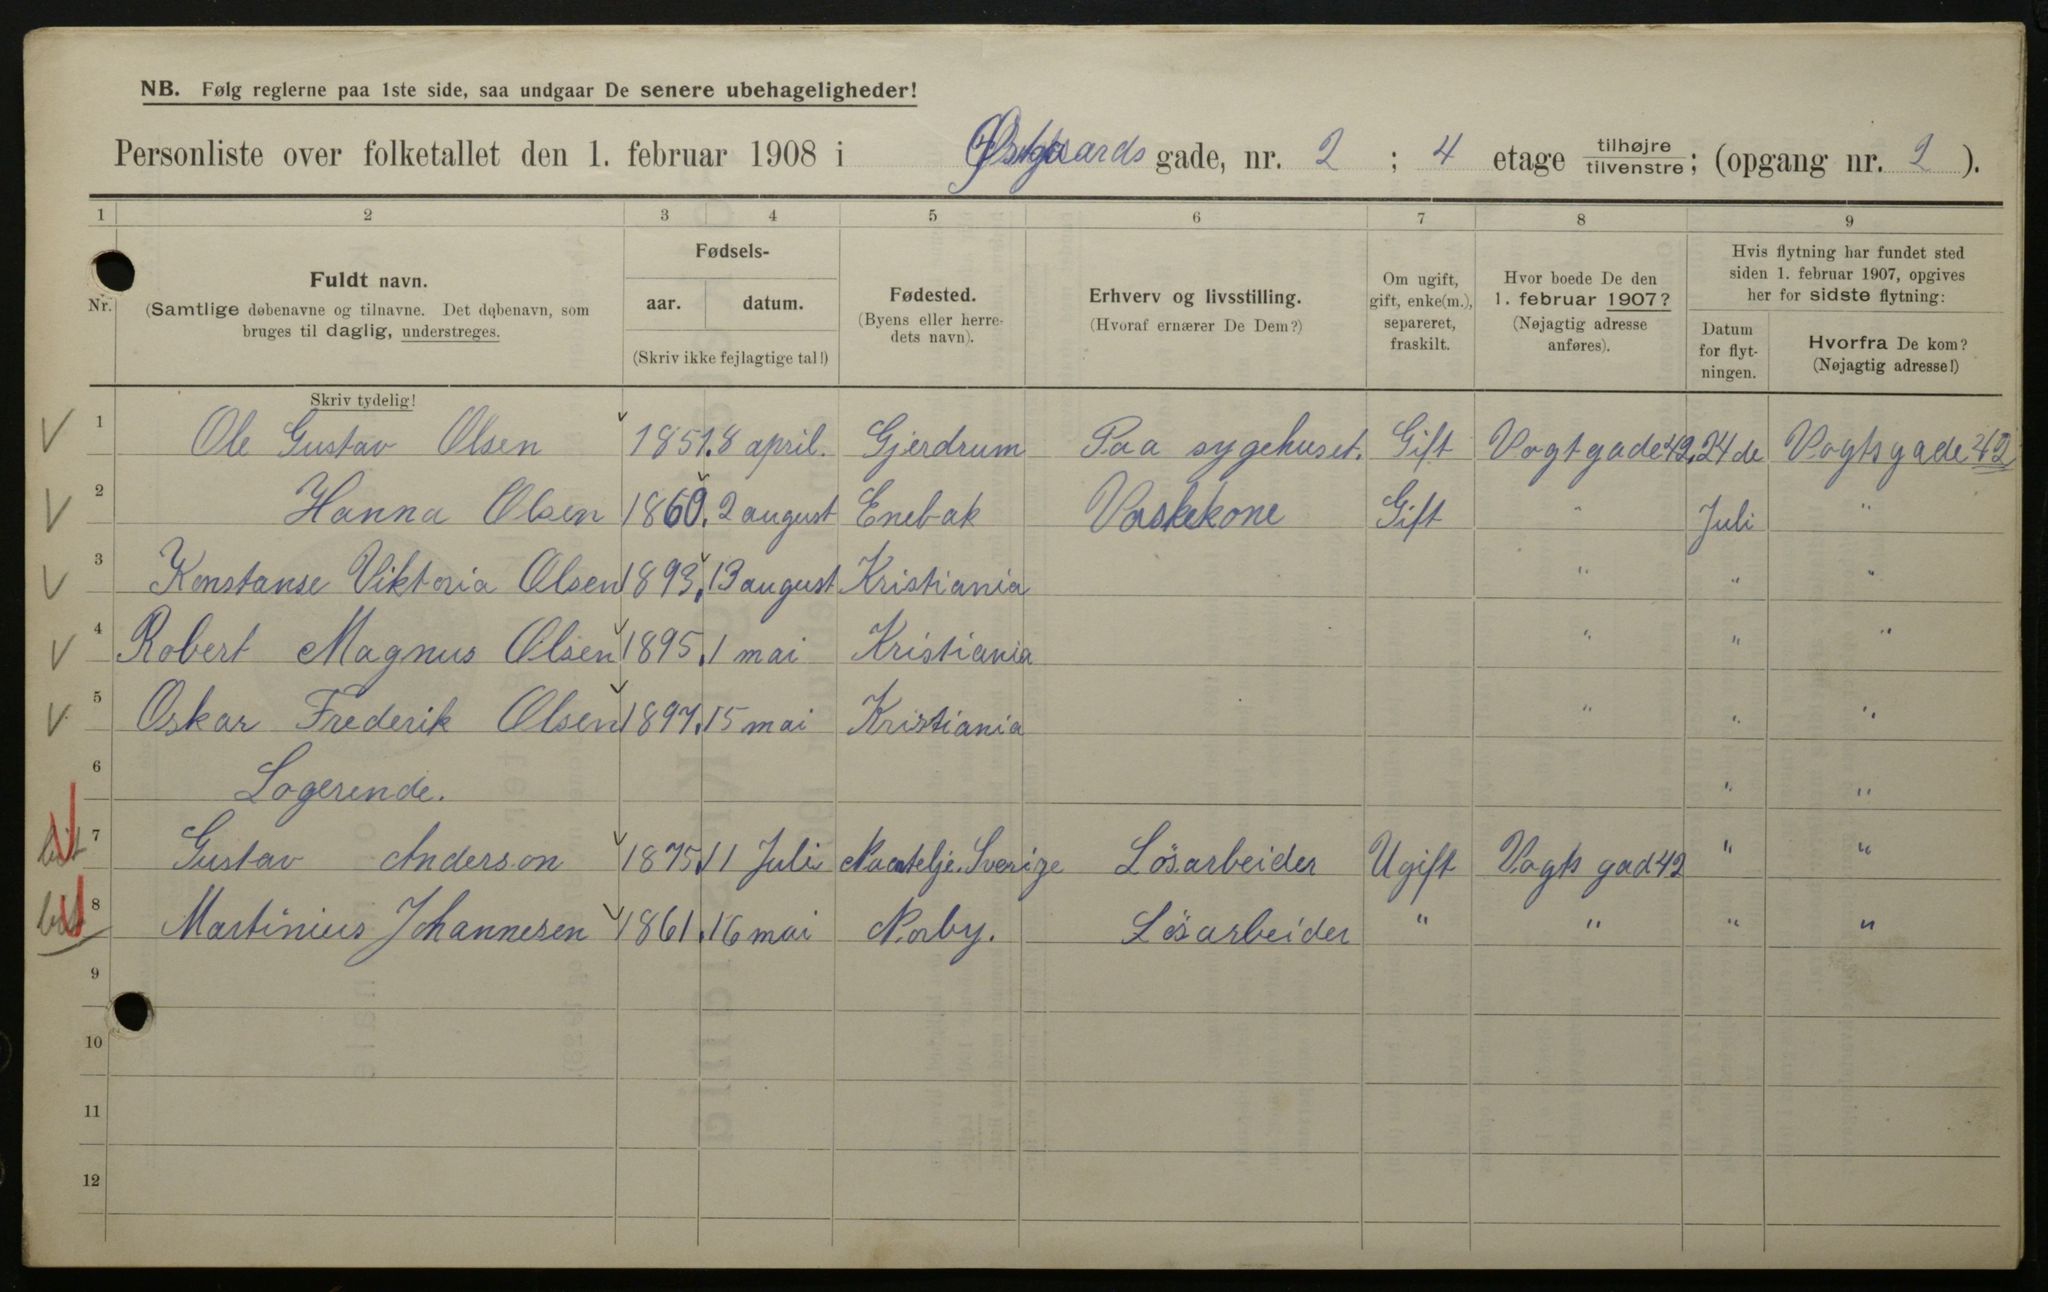 NB. Følg reglerne paa 1ste side, saa undgaar De senere ubehageligheder!
Personliste over folketallet den 1. februar 1908 i Østgaards gade, nr. 2 ; 4 etage tilhøjre tilvenstre; (opgang nr. 2 ).
1 2 3 4 5 6 7 8 9
Nr. Fuldt navn. (Samtlige døbenavne og tilnavne. Det døbenavn, som bruges til daglig, understreges.
Fødsels-
aar. datum.
(Skriv ikke fejlagtige tal!)
Fødested. (Byens eller herredets navn).
Erhverv og livsstilling. (Hvoraf ernærer De Dem?)
Om ugift, gift, enke(m.), separeret, fraskilt.
Hvor boede De den 1. februar 1907? (Nøjagtig adresse anføres).
Hvis flytning har fundet sted siden 1. februar 1907, opgives her for sidste flytning:
Datum for flytningen.
Hvorfra De kom? (Nøjagtig adresse!)
Skriv tydelig!
1 Ole Gustav Olsen 1851. 8 april. Gjerdrum Paa sygehuset. Gift Vogtgade 42. 24de Vogtsgade 42
2 Hanna Olsen 1860. 2 august Enebak Vaskekone Gift " Juli "
3 Konstanse Viktoria Olsen 1893. 13 august Kristiania " " "
4 Robert Magnus Olsen 1895. 1 mai Kristiania " " "
5 Oskar Frederik Olsen 1897. 15 mai Kristiania " " "
6 Logerende. " "
7 Gustav Anderson 1875. 11 Juli Sverige Løsarbeider Ugift Vogts gad 42 " "
8 Martinius Johannesen 1861. 16 mai Norby. Løsarbeider " " " "
9
10
11
12